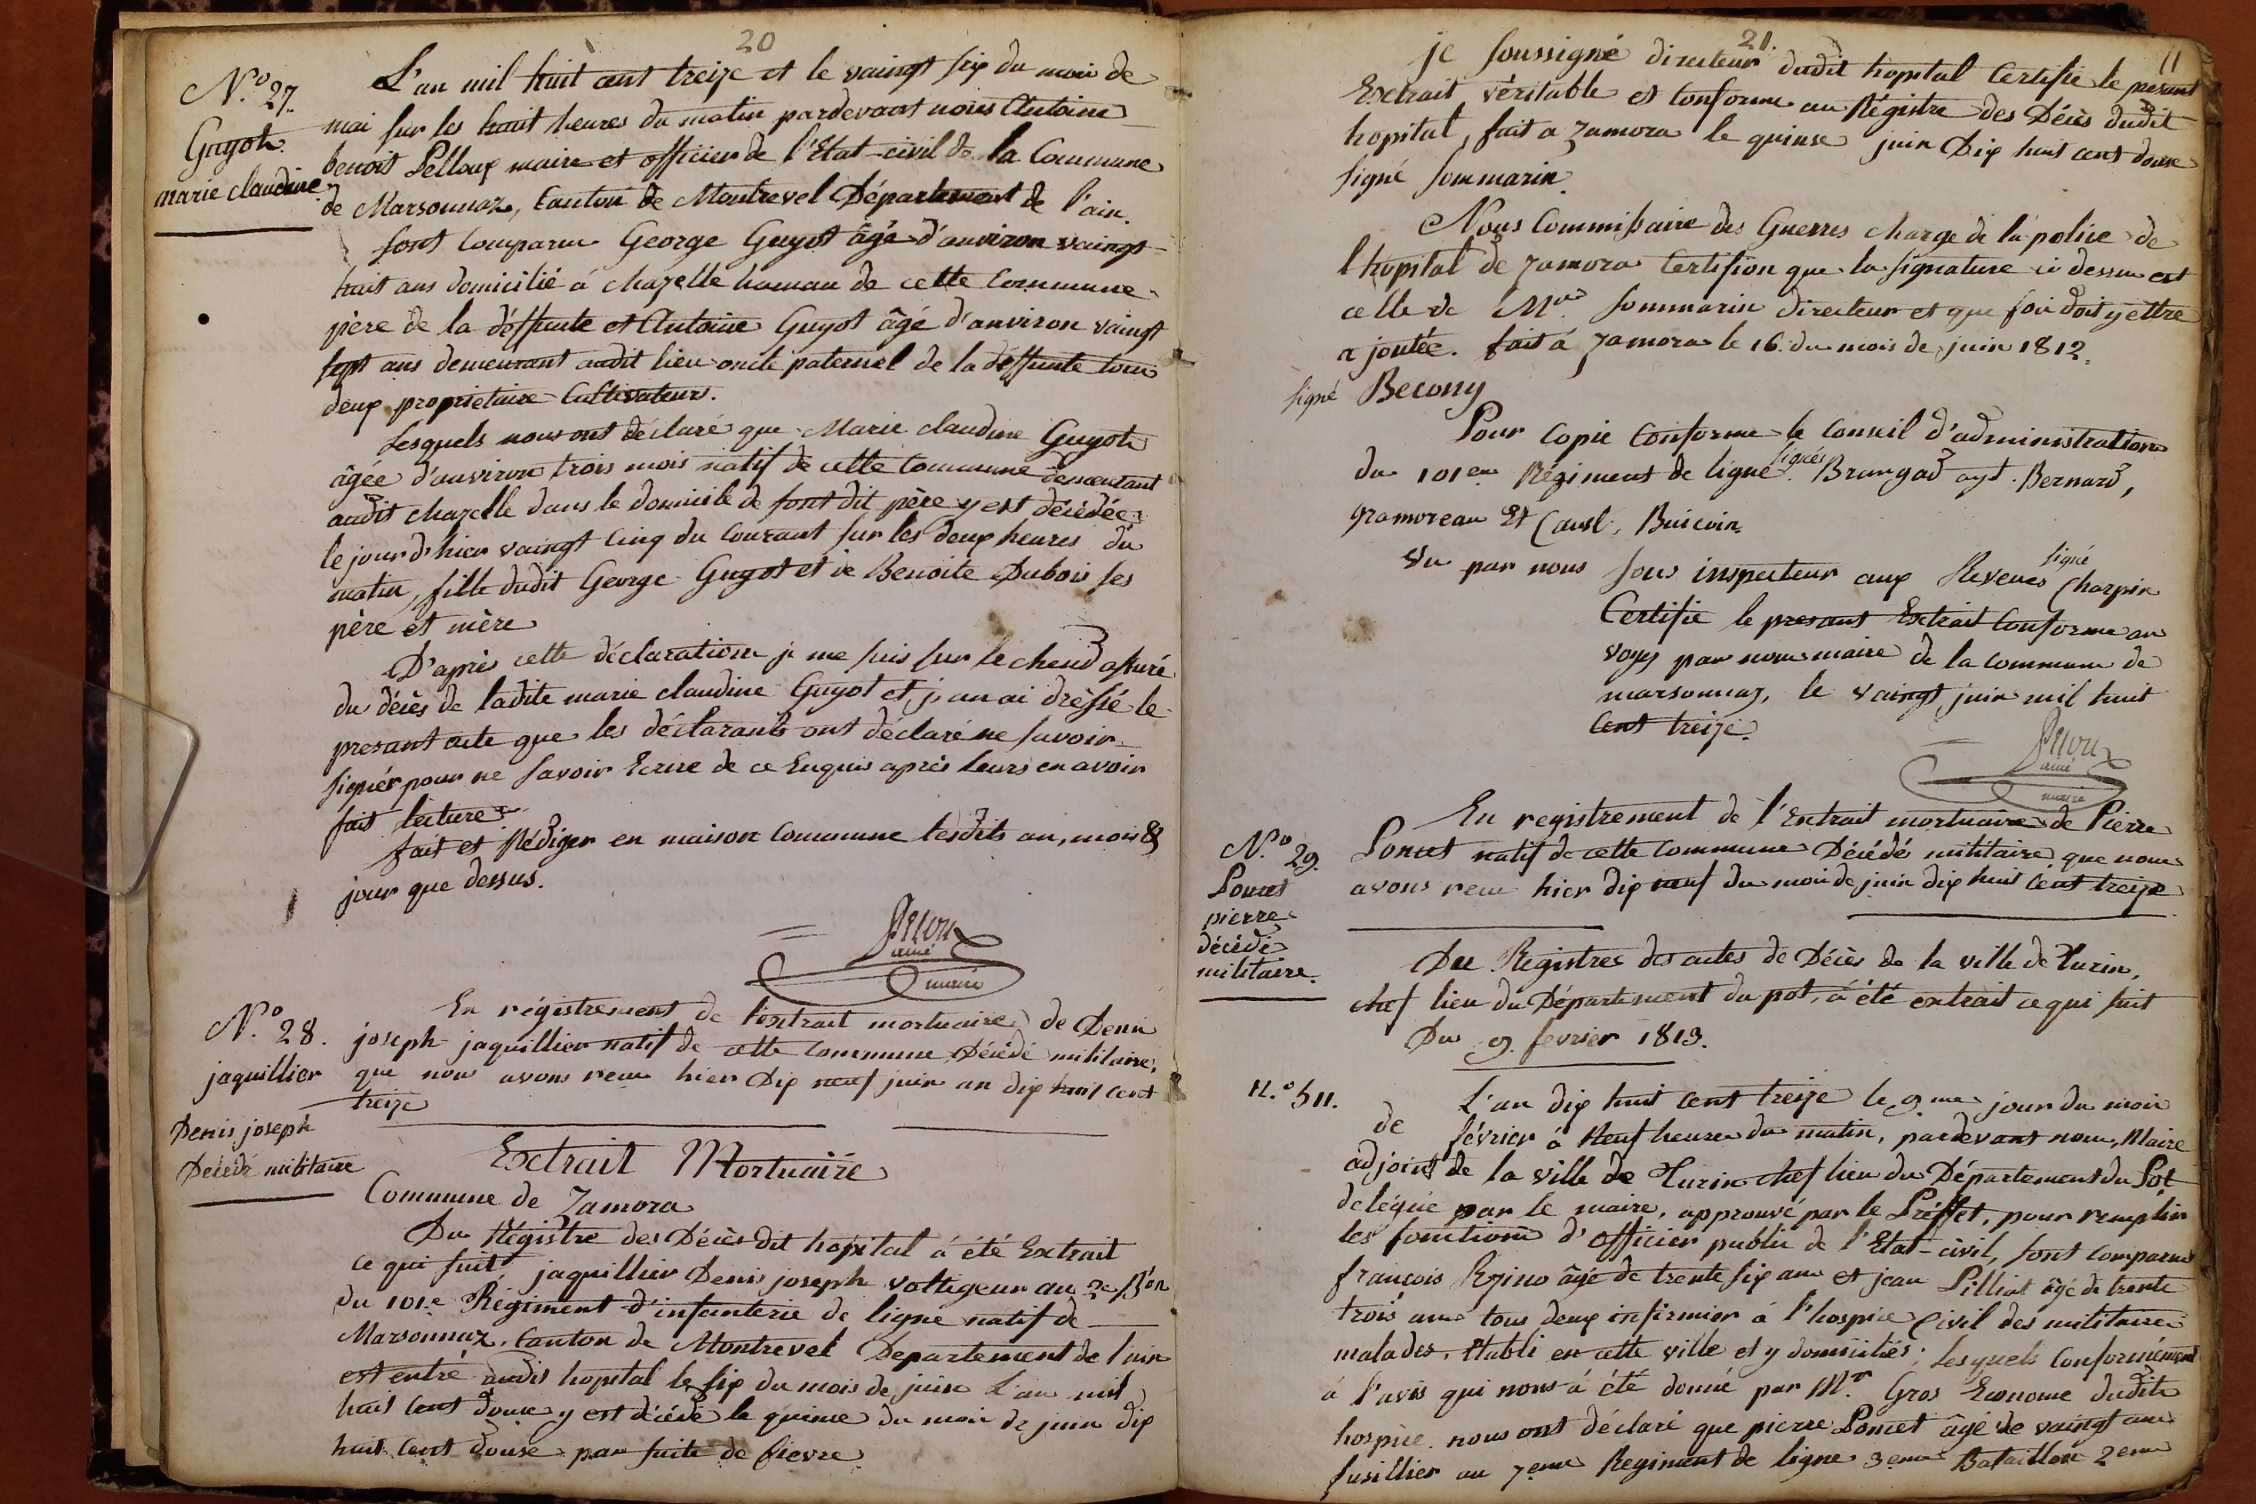 20
N.o 27.
Guyot
marie claudine
L'an mil huit cent treize et le vaingt six du mois de
mai sur les huit heures du matin pardevant nous Antoine
benoit Pelloux maire et officier de l'Etat-civil de la Commune
de Marsonnaz, Canton de Montrevel Département de l'ain.
sont Comparu George Guyot âgé d'anviron vaingt
huit ans domicilié á chazelle hamau de cette Commune
père de la déffunte et Antoine Guyot âgé d'anviron vaingt
sept ans demeurant audit lieu oncle paternel de la déffunte tous
deux propriétaire Cultivateurs.
Lesquels nous ont déclaré que Marie claudine Guyot
âgée d'anviron trois mois natif de cette Commune demeurant
audit chazelle dans le domicile de sont dit père y est décédée
le jour d'hier vaingt Cinq du Courant sur les deux heures du
matin, fille dudit George Guyot et de Benoite Dubois ses
père et mère
D'après cette déclaration je me suis sur le chemd assuré
du décès de ladite marie claudine Guyot et j'an ai dréssé le
presant acte que les déclarants ont déclaré ne savoir
signér pour ne savoir Ecrire de ce Enquis après leurs en avoir
fait lecture
fait et Rédiger en maison Commune lesdits an, mois &
jour que dessus.
Pelloux
ainé
maire
N.o 28.
jaquillier
Denis joseph
Décédé militaire
En régistrement de l'extrait mortuaire de Denis
joseph jaquillier natif de cette Commune Décédé militaire,
que nous avons reçu hier Dix neuf juin an dix huit cent
treize
Extrait Mortuaire
Commune de Zamora
Du Régistre des Décès dit hopital á été Extrait
ce qui suit jaquillier Denis joseph voltigeur au 2e B.on
du 101.e Régiment d'infanterie de ligne natif de
Marsonnaz, Canton de Montrevel Departement de l'ain
est entré audit hopital le six du mois de juin L'an mil
huit Cent douze y est décédé le quinse du mois de juin dix
huit Cent douse par suite de fievre
21.
11
je soussigné directeur dudit hopital Certifie le presant
Extrait véritable et Conforme au Régistre des Décès dudit
hopital, fait a Zamora le quinse juin Dix huit cent douse
signé sommarin
Nous Commissaire des Guerres charge de la police de
l'hopital de Zamora Certifion que la signature ci dessus est
celle de Mr. sommarin directeur et que foi doit y ettre
ajoutée. fait á Zamora le 16. du mois de juin 1812.
signé Becony
Pour Copie Conforme le Conseil d'administration
du 101em Régiment de ligne. signés Brungad ayt. Bernard,
gramoreau Et Caust, Buicoin
Vu par nous sous inspecteur aux Reveues signé Charpin
Certifie le presant Extrait Conforme an
voyé par nous maire de la Commune de
marsonnaz, le vaingt juin mil huit
Cent treize.
Pelloux
ainé
maire
N.o 29.
Poncet
pierre
décédé
militaire.
En registrement de l'Extrait mortuaire de Pierre
Poncet natif de cette Commune Décédé militaire que nous
avons reçu hier dix neuf du mois de juin dix huit Cent treize
Du Registre des actes de Décès de la ville de Turin,
chef lieu du Département du pot, á été extrait ce qui suit
Du 9. fevrier 1813.
N.o 511.
L'an dix huit Cent treize le 9me jour du mois
de février á Neuf heures du matin, pardevant nous, Maire
adjoint de la ville de Turin chef lieu du Département du Pot
delégué par le maire, approuvé par le Préffet, pour remplir
les fonctions d'officier public de l'Etat-civil, sont Comparus
françois Rozino âgé de trente six ans et jean Pilliot âgé de trente
trois ans tous deux infirmier á l'hospice Civil des militaires
malades, Etabli en cette ville et y domiciliés; lesquels Conformément
á l'avis qui nous á été donné par Mr. Gros Econome dudit
hospice nous ont déclaré que pierre Poncet âgé de vaingt ans
fusillier au 7eme Regiment de ligne 3eme Bataillon 2eme